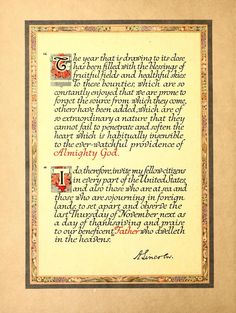 The year that is drawing to its close
has been filled with the blessings of
fruitful fields and healthful skies
To these bounties, which are so
constantly enjoyed that we are prone to
forget the source from which they come,
others have been added, which are of
so extraordinary a nature that they
cannot fail to penetrate and soften the
heart which is habitually insensible
to the ever-watchful providence of
Almighty God.
I do, therefore, invite my fellow-citizens
in every part of the United States,
and also those who are at sea and
those who are sojourning in foreign
lands, to set apart and observe the
last Thursday of November next as
a day of thanksgiving and praise
to our beneficent Father who dwelleth
in the heavens.
A. Lincoln.